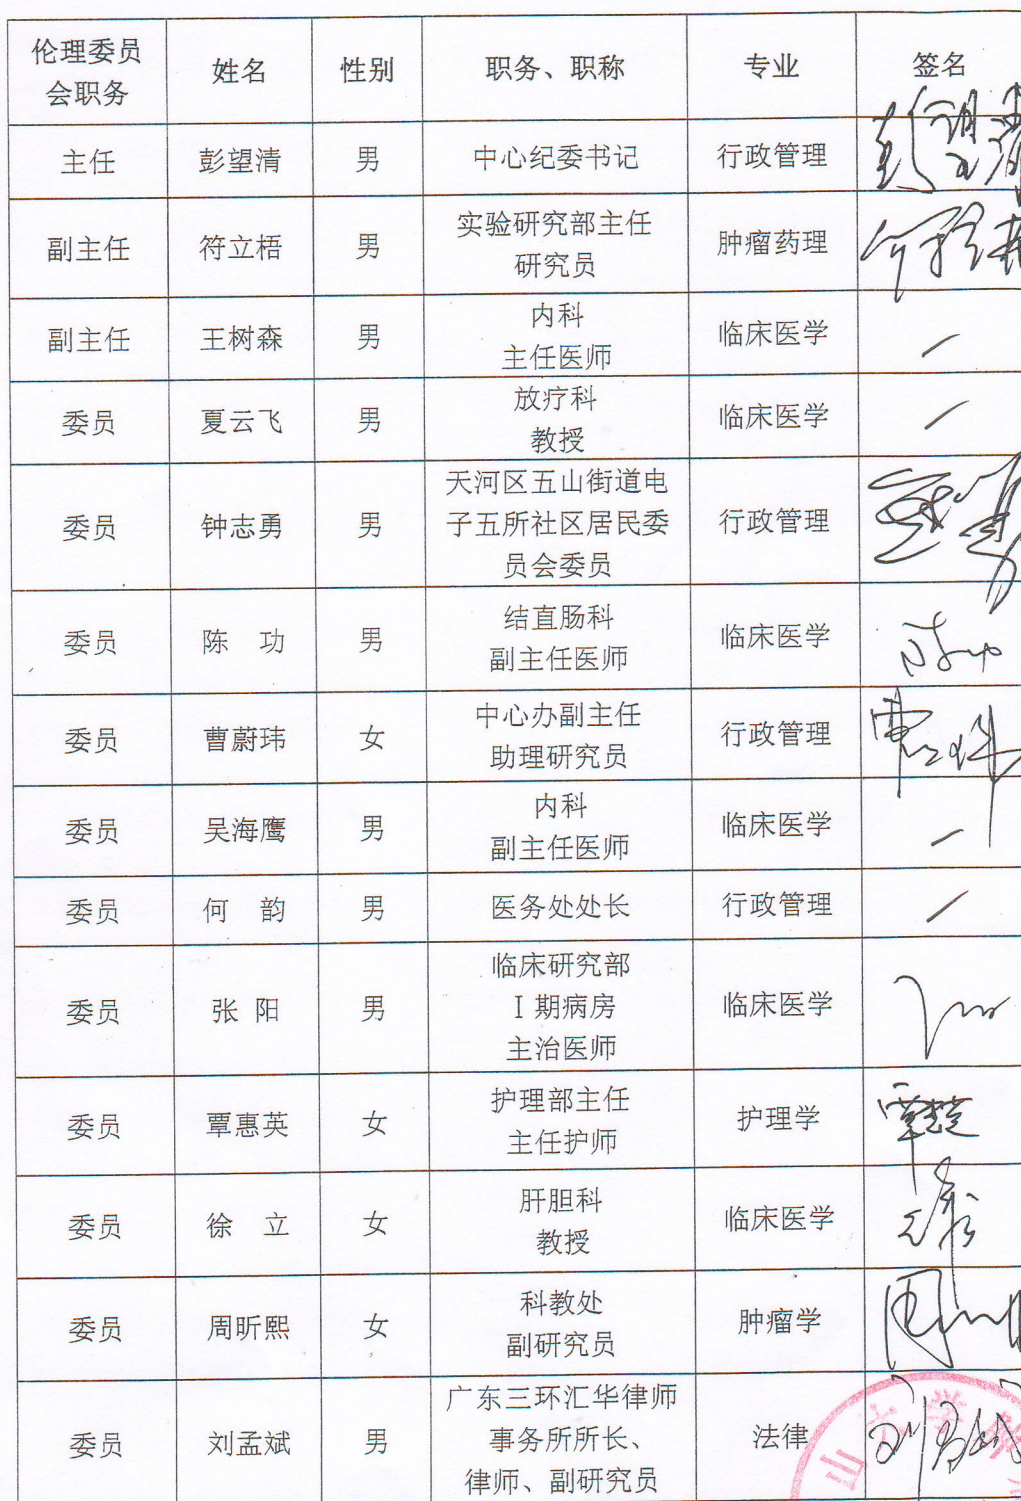 伦理委员
会职务
姓名
性别
职务、职称
专业
签名
主任
彭望清
男
中心纪委书记
行政管理
彭望清
副主任
符立梧
男
实验研究部主任
研究员
肿瘤药理
副主任
王树森
男
内科
主任医师
临床医学
委员
夏云飞
男
放疗科
教授
临床医学
委员
钟志勇
男
天河区五山街道电
子五所社区居民委
员会委员
行政管理
委员
陈 功
男
结直肠科
副主任医师
临床医学
委员
曹蔚玮
女
中心办副主任
助理研究员
行政管理
委员
吴海鹰
男
内科
副主任医师
临床医学
委员
何 韵
男
医务处处长
行政管理
委员
张 阳
男
临床研究部
Ⅰ期病房
主治医师
临床医学
委员
覃惠英
女
护理部主任
主任护师
护理学
委员
徐 立
女
肝胆科
教授
临床医学
委员
周昕熙
女
科教处
副研究员
肿瘤学
委员
刘孟斌
男
广东三环汇华律师
事务所所长、
律师、副研究员
法律
山大学